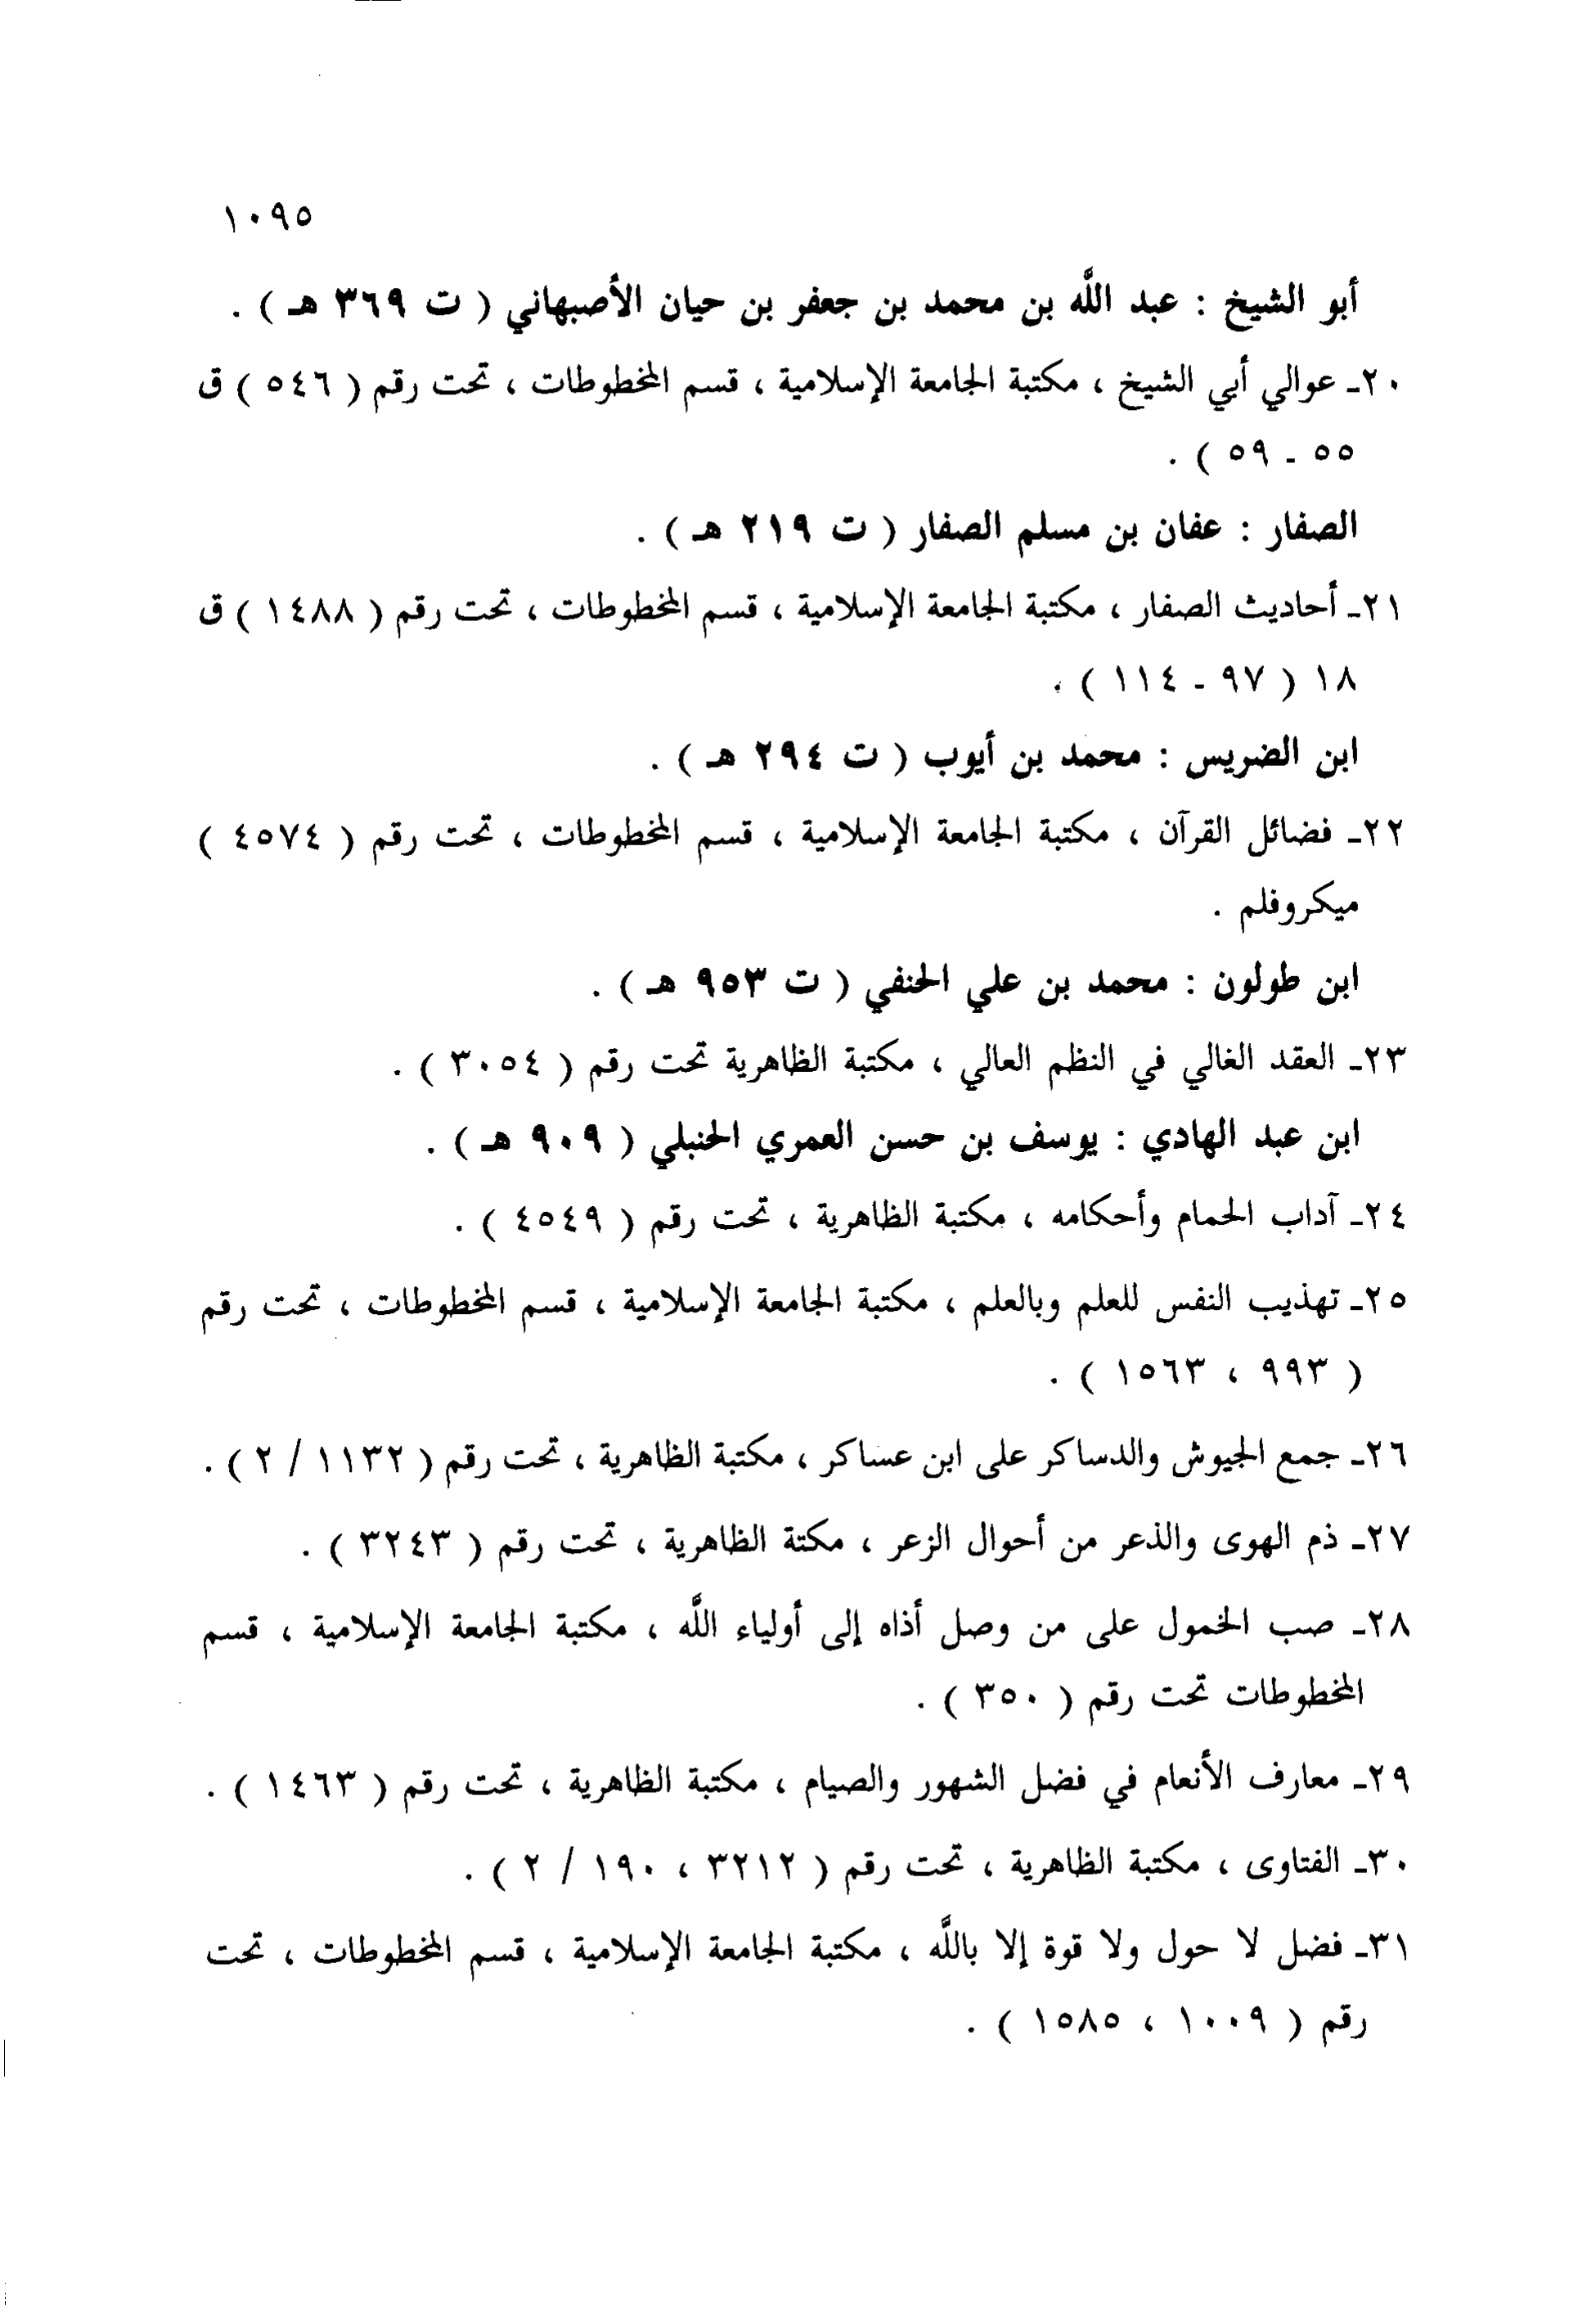 ١٠٩٥
أبو الشيخ : عبد اللَّه بن محمد بن جعفر بن حيان الأصبهاني ( ت ٣٦٩ هـ ) .
٢٠ـ عوالي أبي الشيخ ، مكتبة الجامعة الإسلامية ، قسم المخطوطات ، تحت رقم ( ٥٤٦ ) ق
٥٥ - ٥٩ ) .
الصفار : عفان بن مسلم الصفار ( ت ٢١٩ هـ ) .
٢١ـ أحاديث الصفار ، مكتبة الجامعة الإسلامية ، قسم المخطوطات ، تحت رقم ( ١٤٨٨ ) ق
١٨ ( ٩٧ - ١١٤ ) .
ابن الضريس : محمد بن أيوب ( ت ٢٩٤ هـ ) .
٢٢ـ فضائل القرآن ، مكتبة الجامعة الإسلامية ، قسم المخطوطات ، تحت رقم ( ٤٥٧٤ )
ميكروفلم .
ابن طولون : محمد بن علي الحنفي ( ت ٩٥٣ هـ ) .
٢٣ـ العقد الغالي في النظم العالي ، مكتبة الظاهرية تحت رقم ( ٣٠٥٤ ) .
ابن عبد الهادي : يوسف بن حسن العمري الحنبلي ( ٩٠٩ هـ ) .
٢٤ـ آداب الحمام وأحكامه ، مكتبة الظاهرية ، تحت رقم ( ٤٥٤٩ ) .
٢٥ـ تهذيب النفس للعلم وبالعلم ، مكتبة الجامعة الإسلامية ، قسم المخطوطات ، تحت رقم
( ٩٩٣ ، ١٥٦٣ ) .
٢٦ـ جمع الجيوش والدساكر على ابن عساكر ، مكتبة الظاهرية ، تحت رقم ( ١١٣٢ / ٢ ) .
٢٧ـ ذم الهوى والذعر من أحوال الزعر ، مكتة الظاهرية ، تحت رقم ( ٣٢٤٣ ) .
٢٨ـ صب الخمول على من وصل أذاه إلى أولياء اللَّه ، مكتبة الجامعة الإسلامية ، قسم
المخطوطات تحت رقم ( ٣٥٠ ) .
٢٩ـ معارف الأنعام في فضل الشهور والصيام ، مكتبة الظاهرية ، تحت رقم ( ١٤٦٣ ) .
٣٠ـ الفتاوى ، مكتبة الظاهرية ، تحت رقم ( ٣٢١٢ ، ١٩٠ / ٢ ) .
٣١ـ فضل لا حول ولا قوة إلا باللَّه ، مكتبة الجامعة الإسلامية ، قسم المخطوطات ، تحت
رقم ( ١٠٠٩ ، ١٥٨٥ ) .